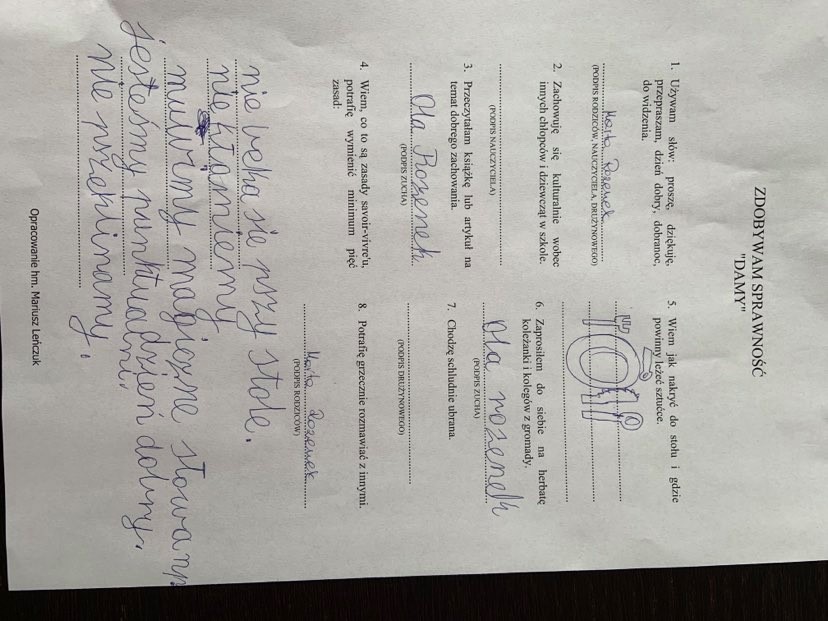 ZDOBYWAM SPRAWNOŚĆ
"DAMY"
1. Używam słów: proszę, dziękuję,
przepraszam, dzień dobry, dobranoc,
do widzenia.
Marta Rozenek
(PODPIS RODZICÓW, NAUCZYCIELA, DRUŻYNOWEGO)
2. Zachowuję się kulturalnie wobec
innych chłopców i dziewcząt w szkole.
(PODPIS NAUCZYCIELA)
3. Przeczytałam książkę lub artykuł na
temat dobrego zachowania.
Ola Rozenek
(PODPIS ZUCHA)
4. Wiem, co to są zasady savoir-vivre'u,
potrafię wymienić minimum pięć
zasad:
nie beka sie pszy stole.
nie kłamiemy
muwimy magiczne słowa np
jesteśmy punktualni. dzień dobry.
nie pszeklinamy.
5. Wiem jak nakryć do stołu i gdzie
powinny leżeć sztućce.
6. Zaprosiłem do siebie na herbatę
koleżanki i kolegów z gromady.
Ola rozenek
(PODPIS ZUCHA)
7. Chodzę schludnie ubrana.
(PODPIS DRUŻYNOWEGO)
8. Potrafię grzecznie rozmawiać z innymi.
Marta Rozenek
(PODPIS RODZICÓW)
Opracowanie hm. Mariusz Leńczuk